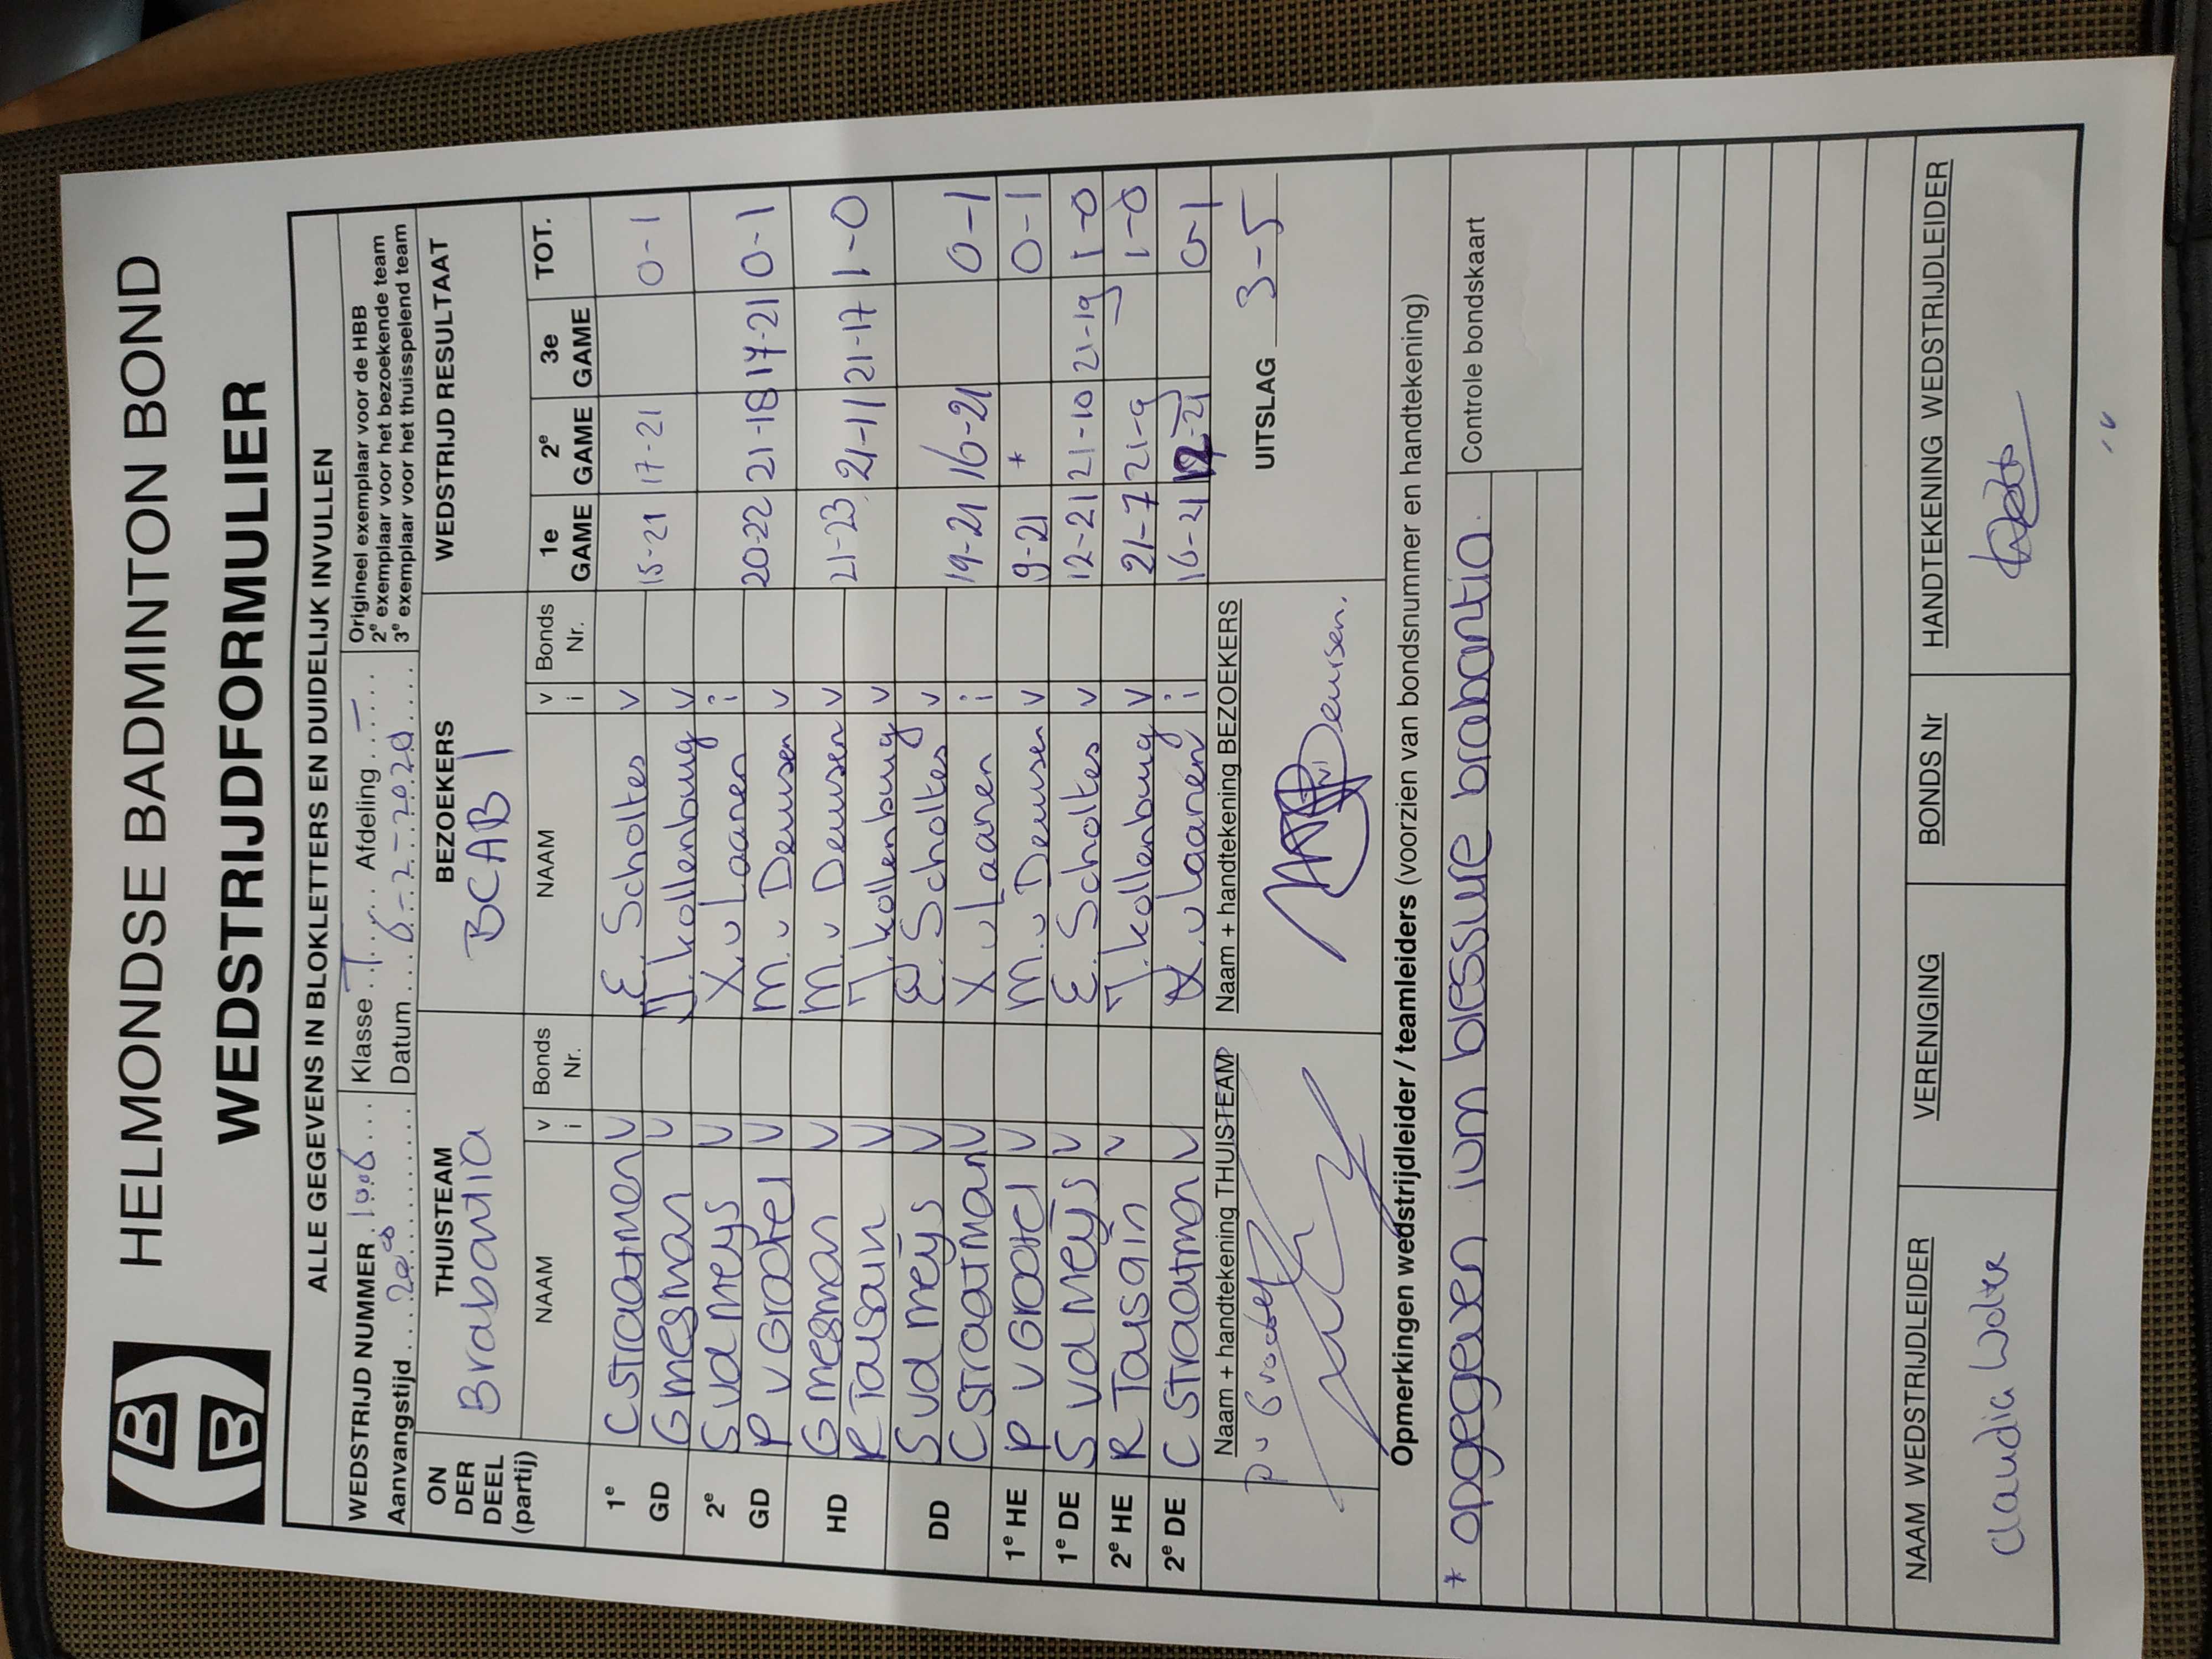 HBB
HELMONDSE BADMINTON BOND
WEDSTRIJDFORMULIER
ALLE GEGEVENS IN BLOKLETTERS EN DUIDELIJK INVULLEN
WEDSTRIJD NUMMER 1006 Klasse T Afdeling – Origineel exemplaar voor de HBB
Aanvangstijd 20:00 Datum 6-2-2020 2e exemplaar voor het bezoekende team
3e exemplaar voor het thuisspelend team
ON DER DEEL (partij) THUISTEAM BEZOEKERS WEDSTRIJD RESULTAAT
Brabantia BCAB 1
NAAM v i Bonds Nr. NAAM v i Bonds Nr. 1e GAME 2e GAME 3e GAME TOT.
1e GD C Straatman V E. Scholtes V 15-21 17-21 0-1
G mesman V J. kollenburg V
2e GD S vd meys V X. v Laanen i
P v Grootel V M. v Deursen V 20-22 21-18 17-21 0-1
HD G mesman V M. v Deursen V 21-23 21-11 21-17 1-0
R Tausain V J. kollenburg V
DD S vd meijs V E. Scholtes V
C Straatman V X v Laanen i 19-21 16-21 0-1
1e HE P v Grootel V M. v Deursen V 9-21 * 0-1
1e DE S vd Meijs V E. Scholtes V 12-21 21-10 21-19 1-0
2e HE R Tausain V J. kollenburg V 21-7 21-9 1-0
2e DE C Straatman V X. v Laanen i 16-21 12-21 0-1
Naam + handtekening THUISTEAM Naam + handtekening BEZOEKERS UITSLAG 3-5
P v Grootel
v Deursen.
Opmerkingen wedstrijdleider / teamleiders (voorzien van bondsnummer en handtekening)
* opgegeven ivm blessure brabantia. Controle bondskaart
NAAM WEDSTRIJDLEIDER VERENIGING BONDS Nr HANDTEKENING WEDSTRIJDLEIDER
Claudia